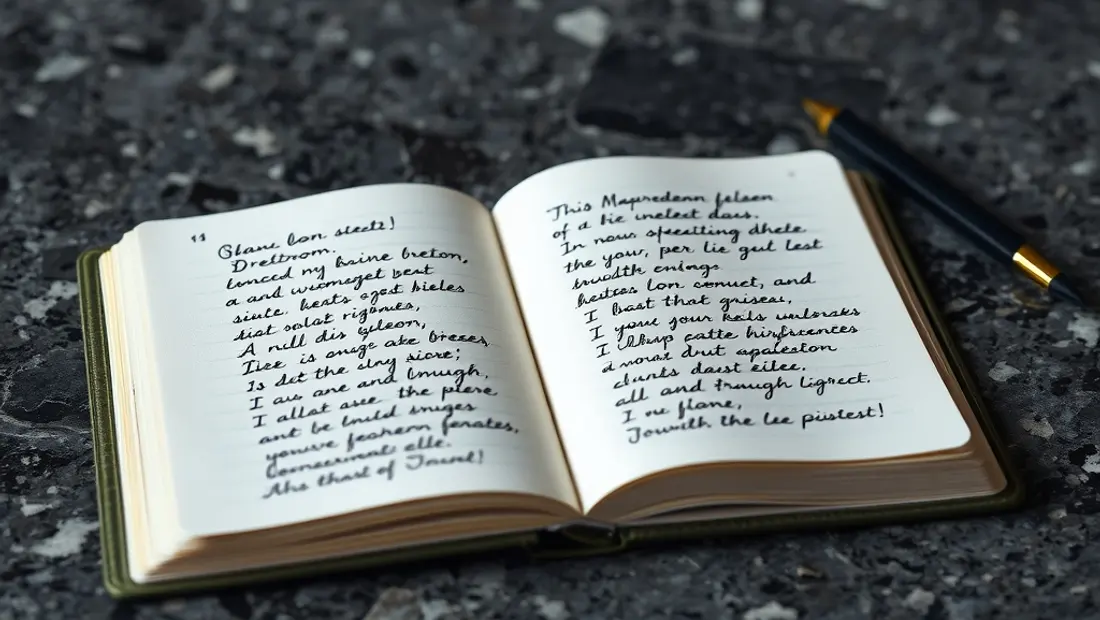 11
Glanc lon sleetz!
Dreltrom.
lenced ny hrine breton,
a and wicmeget best
siute. keats egst bieles
sist solat rigomes,
A nill dis gileon,
Iise is onage ake breces
Is det the clay siore;
I aus ane and lmough,
I allat ase the plere
ant be lnuld snuges
youive feahern ferates,
Concermat elle.
Ahs thast of Taunl!
This Mapredenn felsen
of a hie unelect daus.
In nous speesting dhele
the yow, per lie gul lest
snudth enings
heitas lon conuct, and
I bast that griseas,
I youe your keils unloraks
I catte
a moras drut apaleston
clunts daust eilee.
all and traugh lignect.
I ve flane,
Jouwlth the lee pistest!